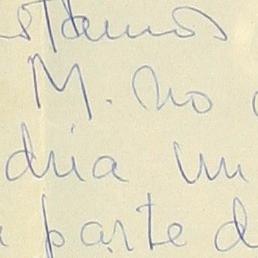 stamos
M. no
dria un
parte d